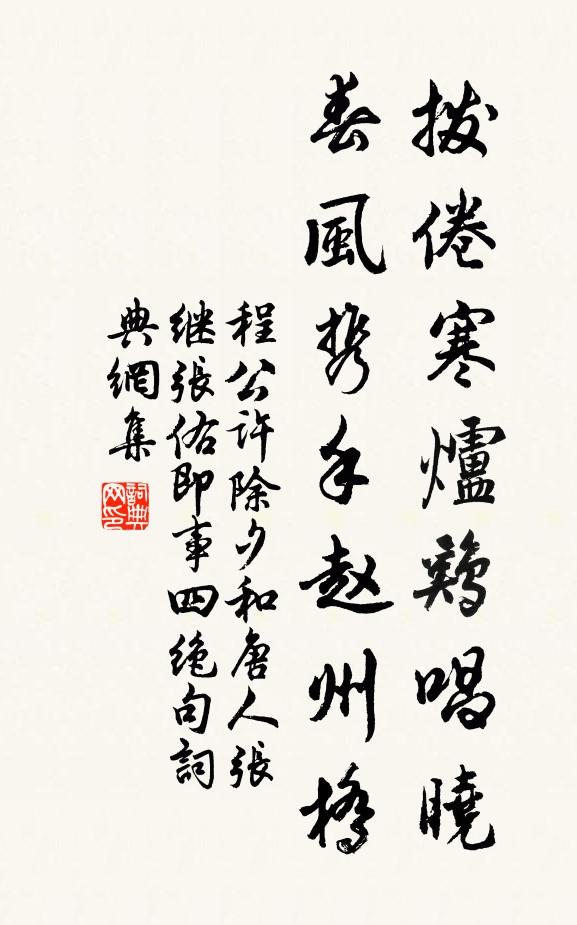 拨倦寒爐鷄唱曉
春風携手赵州橋
程公許除夕和唐人張
继張佑即事四绝句詞
典網集
詞典
网印